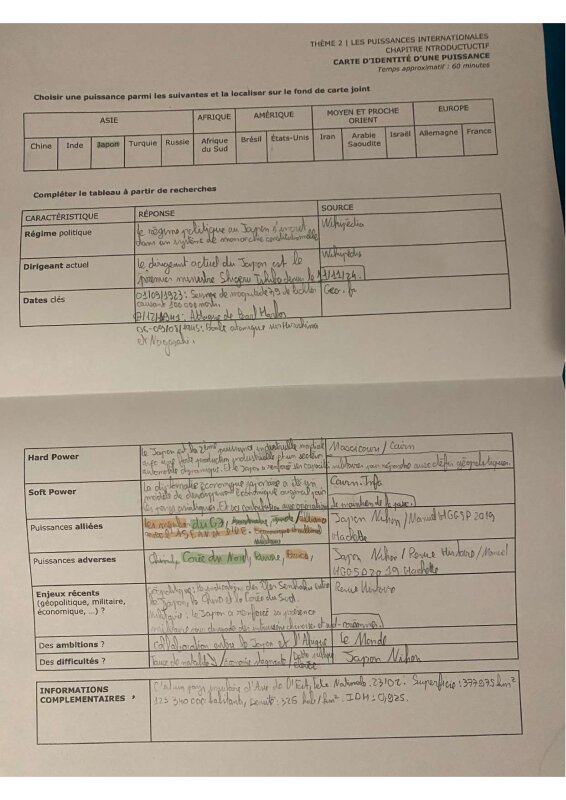 THÈME 2 | LES PUISSANCES INTERNATIONALES
CHAPITRE NTRODUCTUCTIF
CARTE D'IDENTITÉ D'UNE PUISSANCE
Temps approximatif : 60 minutes
Choisir une puissance parmi les suivantes et la localiser sur le fond de carte joint
ASIE AFRIQUE AMÉRIQUE MOYEN ET PROCHE ORIENT EUROPE
Chine Inde Japon Turquie Russie Afrique du Sud Brésil États-Unis Iran Arabie Saoudite Israël Allemagne France
Compléter le tableau à partir de recherches
CARACTÉRISTIQUE RÉPONSE SOURCE
Régime politique Le régime politique au Japon s'inscrit Wikipédia
dans un système de monarchie constitutionnelle
Dirigeant actuel Le dirigeant actuel du Japon est le Wikipédia
premier ministre Shigeru Ishiba depuis le 11/11/24.
Dates clés 01/09/1923: Séisme de magnitude 7,9 de Richter Geo.fr
causant 100 000 morts.
7/12/1941: Attaque de Pearl Harbor
06-09/08/1945: Bombe atomique sur Hiroshima
et Nagasaki.
Hard Power Le Japon est la 2ème puissance industrielle mondiale
avec une forte production industrielle et un secteur
automobile dynamique. Et le Japon a renforcé ses capacités militaires pour répondre aux défis géopolitiques.
Cairn
Soft Power La diplomatie économique japonaise a été un Cairn.Info
modèle de développement économique original pour
les pays asiatiques. Et ses contributions aux opérations de maintien de la paix.
Puissances alliées Les membres du G7, Japon Nihon/Manuel HGGSP 2019
Hachette
Puissances adverses Chine, Corée du Nord, Russie, Japon Nihon/Revue Histoire/Manuel
HGGSP 2019 Hachette
Enjeux récents
(géopolitique, militaire,
économique, ...) ?
Géopolitique: revendication des îles Senkaku entre Revue Histoire
le Japon, la Chine et la Corée du Sud
Militaire: le Japon a renforcé sa présence
militaire
Des ambitions ? Collaboration entre le Japon et l'Afrique Le Monde
Des difficultés ? Taux de natalité / économie stagnante / Dette publique élevée Japon Nihon
INFORMATIONS
COMPLEMENTAIRES
C'est un pays insulaire d'Asie de l'Est, Fête Nationale: 23/02. Superficie: 377 975 km²
habitants, densité: 326 hab/km². IDH: 0,925.